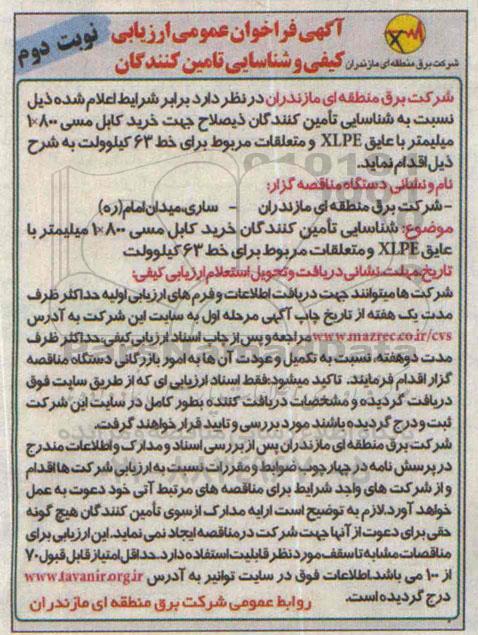 آگهی فراخوان عمومی ارزیابی
کیفی و شناسایی تامین کنندگان
نوبت دوم
شرکت برق منطقه ای مازندران
شرکت برق منطقه ای مازندران در نظر دارد برابر شرایط اعلام شده ذیل
نسبت به شناسایی تأمین کنندگان ذیصلاح جهت خرید کابل مسی ۸۰۰*۱
میلیمتر با عایق XLPE و متعلقات مربوط برای خط ۶۳ کیلوولت به شرح
ذیل اقدام نماید.
نام و نشانی دستگاه مناقصه گزار:
- شرکت برق منطقه ای مازندران - ساری، میدان امام (ره)
موضوع: شناسایی تأمین کنندگان خرید کابل مسی ۸۰۰*۱ میلیمتر با
عایق XLPE و متعلقات مربوط برای خط ۶۳ کیلوولت
تاریخ، مهلت، نشانی دریافت و تحویل استعلام ارزیابی کیفی:
شرکت ها میتوانند جهت دریافت اطلاعات و فرم های ارزیابی اولیه حداکثر ظرف
مدت یک هفته از تاریخ چاپ آگهی مرحله اول به سایت این شرکت به آدرس
www.mazrec.co.ir/cvs مراجعه و پس از چاپ اسناد ارزیابی کیفی، حداکثر ظرف
مدت دو هفته، نسبت به تکمیل و عودت آن ها به امور بازرگانی دستگاه مناقصه
گزار اقدام فرمایند. تاکید میشود: فقط اسناد ارزیابی ای که از طریق سایت فوق
دریافت گردیده و مشخصات دریافت کننده بطور کامل در سایت این شرکت
ثبت و درج گردیده باشند مورد بررسی و تایید قرار خواهند گرفت.
شرکت برق منطقه ای مازندران پس از بررسی اسناد و مدارک و اطلاعات مندرج
در پرسش نامه در چهارچوب ضوابط و مقررات نسبت به ارزیابی شرکت ها اقدام
و از شرکت های واجد شرایط برای مناقصه های مرتبط آتی خود دعوت به عمل
خواهد آورد. لازم به توضیح است ارایه مدارک از سوی تأمین کنندگان هیچ گونه
حقی برای دعوت از آنها جهت شرکت در مناقصه ایجاد نمی نماید. این ارزیابی برای
مناقصات مشابه تا سقف مورد نظر قابلیت استفاده دارد. حداقل امتیاز قابل قبول ۷۰
از ۱۰۰ می باشد. اطلاعات فوق در سایت توانیر به آدرس www.tavanir.org.ir
درج گردیده است.
روابط عمومی شرکت برق منطقه ای مازندران